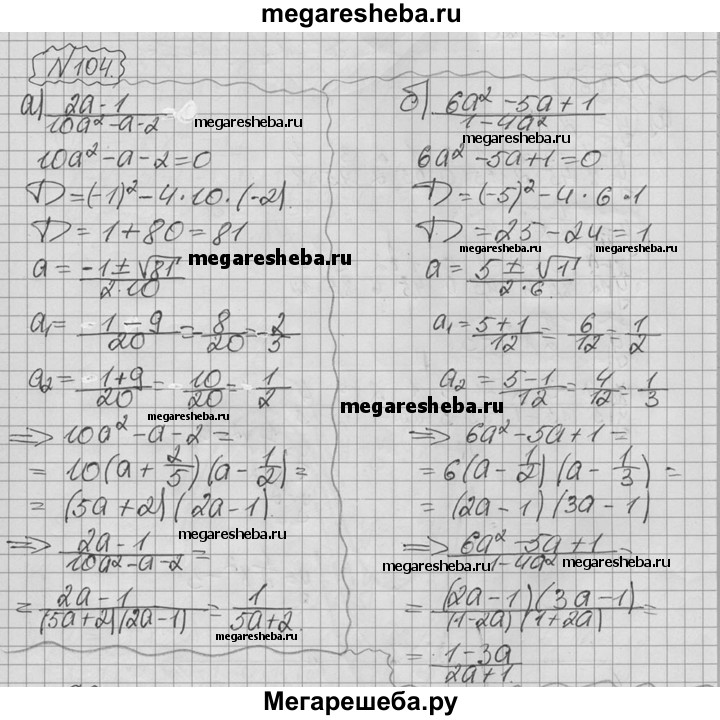 megaresheba.ru
N 104.
а) (2a - 1)/(10a² - a - 2)
megaresheba.ru
10a² - a - 2 = 0
D = (-1)² - 4·10·(-2)
D = 1 + 80 = 81
a = (-1 ± √81)/(2·10)
megaresheba.ru
a₁ = (1 - 9)/20 = -8/20 = -2/3
a₂ = (1 + 9)/20 = 10/20 = 1/2
megaresheba.ru
=> 10a² - a - 2 =
= 10(a + 2/5)(a - 1/2) =
= (5a + 2)(2a - 1)
megaresheba.ru
=> (2a - 1)/(10a² - a - 2) =
= (2a - 1)/((5a + 2)(2a - 1)) = 1/(5a + 2)
megaresheba.ru
б) (6a² - 5a + 1)/(1 - 4a²)
megaresheba.ru
6a² - 5a + 1 = 0
D = (-5)² - 4·6·1
D = 25 - 24 = 1
megaresheba.ru
a = (5 ± √1)/(2·6)
a₁ = (5 + 1)/12 = 6/12 = 1/2
a₂ = (5 - 1)/12 = 4/12 = 1/3
megaresheba.ru
=> 6a² - 5a + 1 =
= 6(a - 1/2)(a - 1/3) =
= (2a - 1)(3a - 1)
=> (6a² - 5a + 1)/(1 - 4a²) =
megaresheba.ru
megaresheba.ru
= ((2a - 1)(3a - 1))/((1 - 2a)(1 + 2a)) =
= (1 - 3a)/(2a + 1)
megaresheba.ru
Мегарешеба.ру